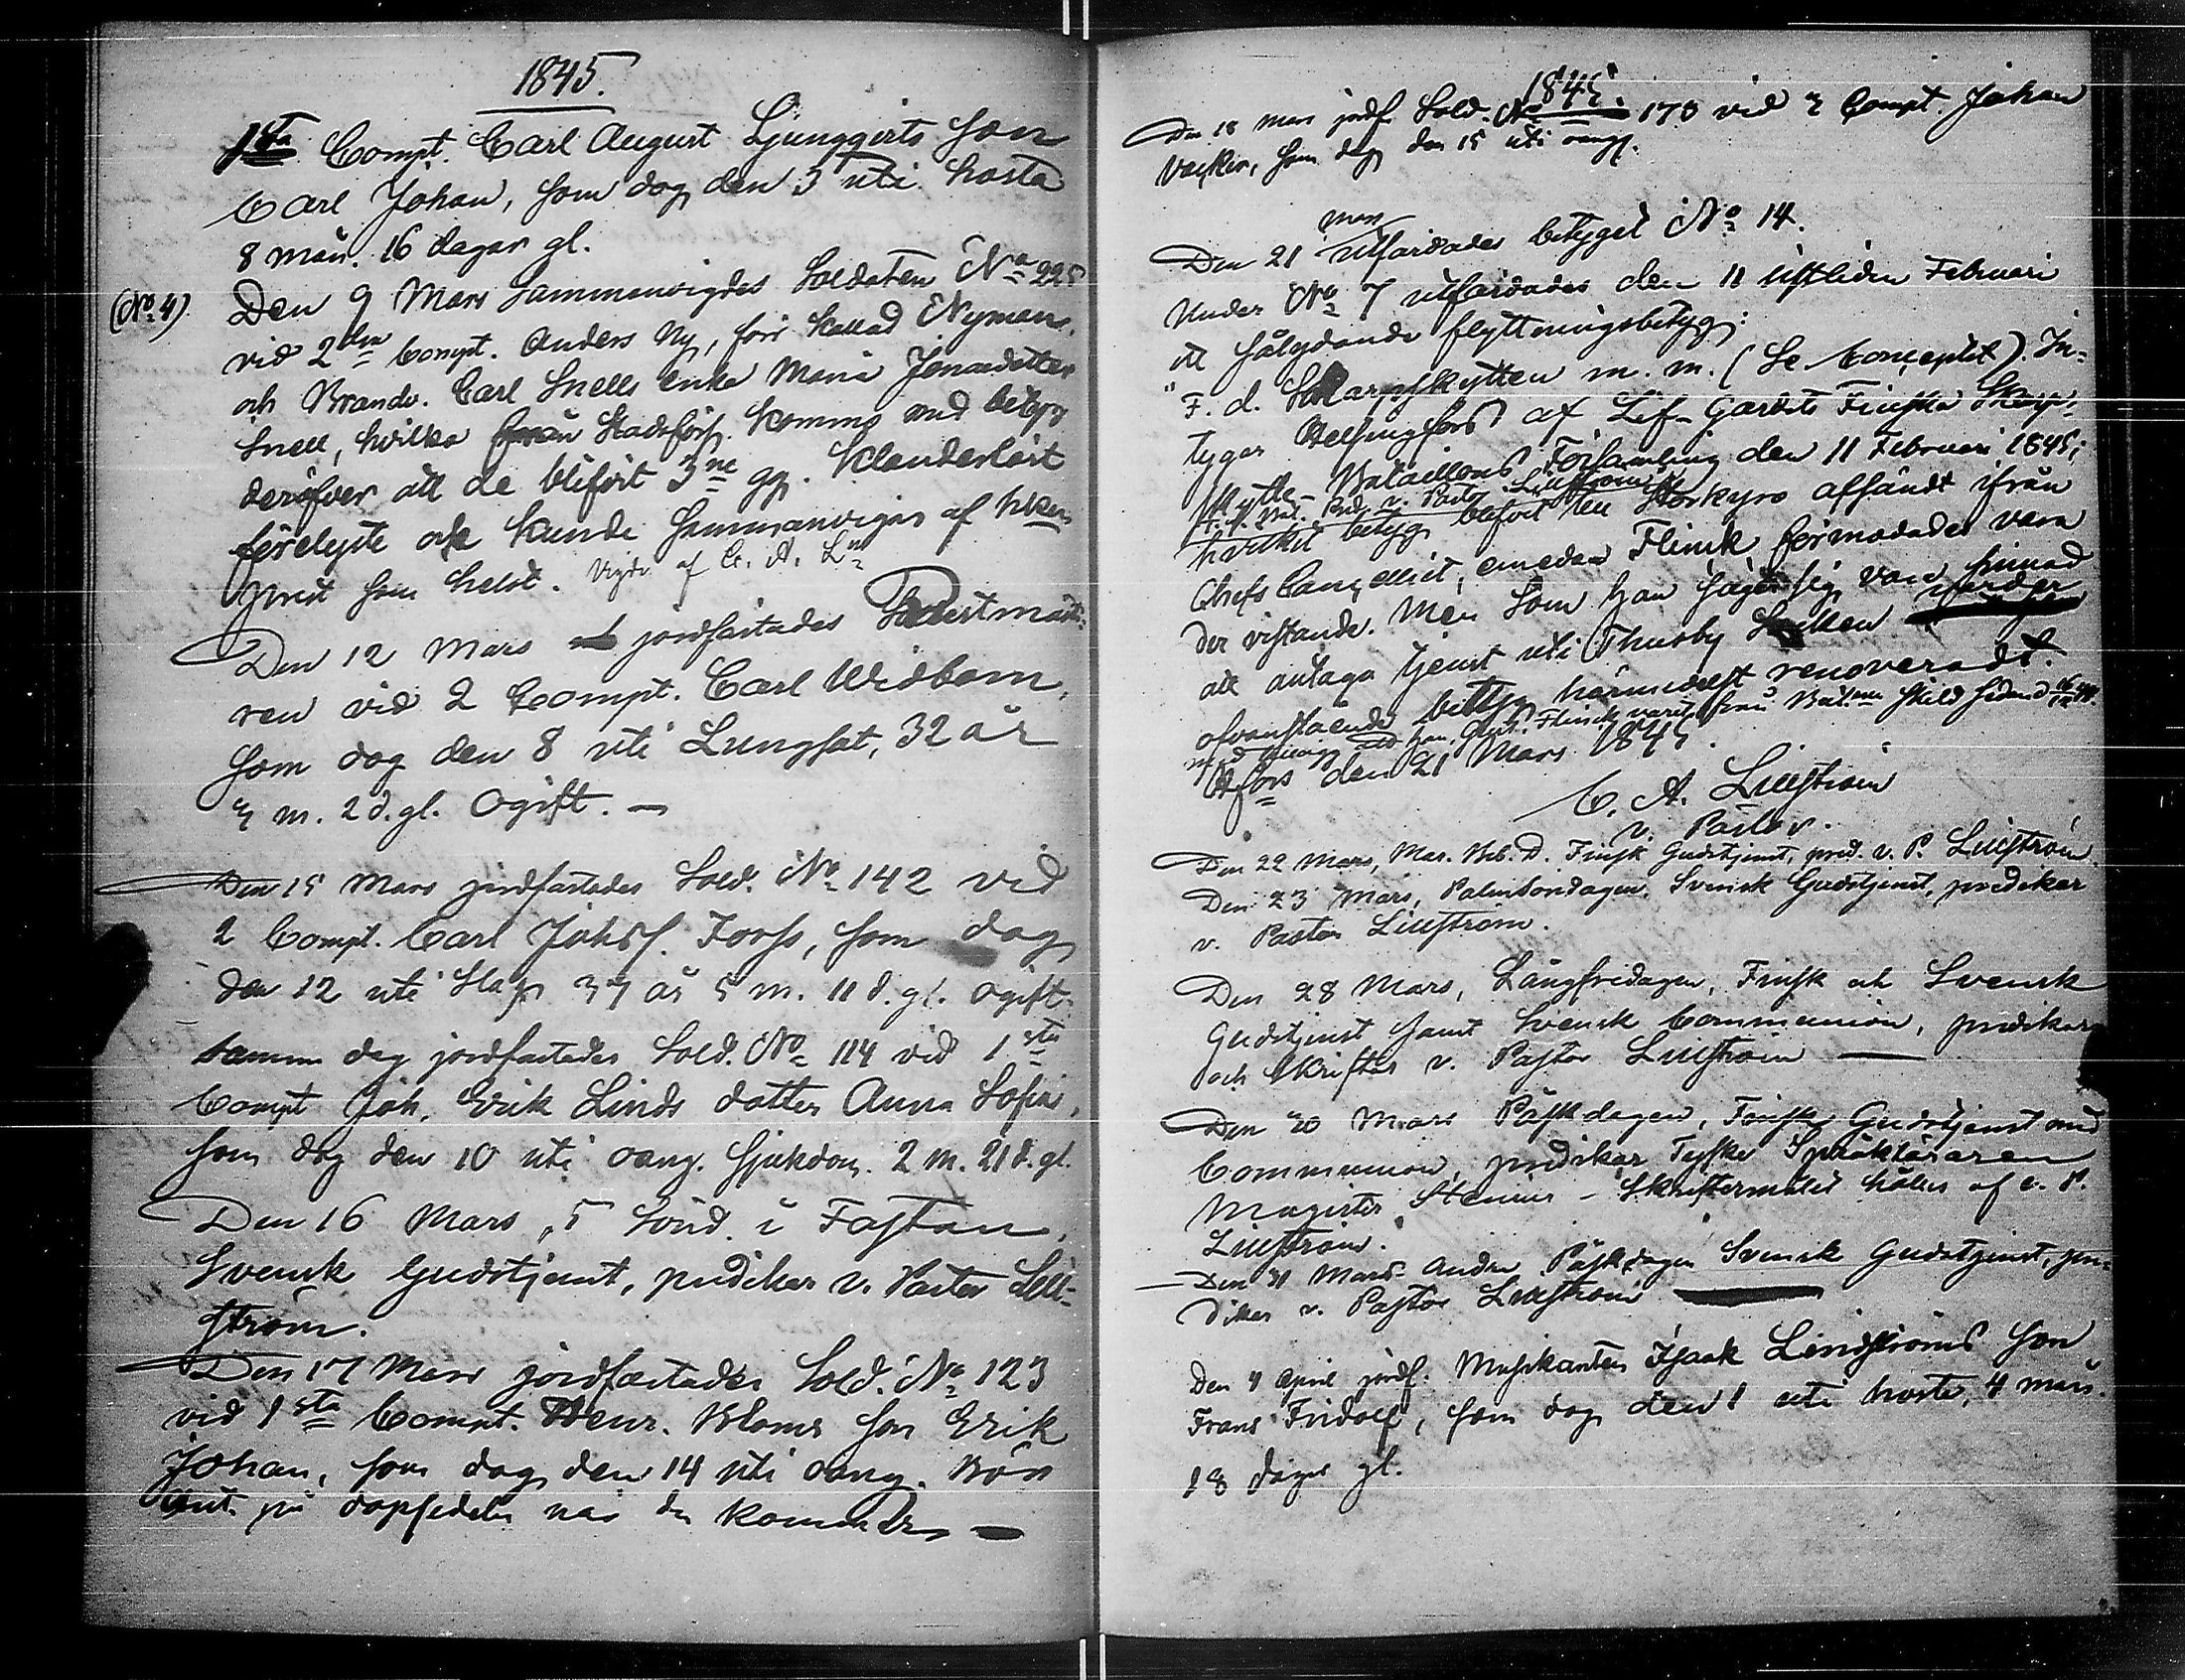 1845.
1sta Compt. Carl August Ljunggrets son
Carl Johan, som dog den 5 uti hosta
8 mån. 16 dagar gl.
(No. 4) Den 9 Mars sammanvigdes Soldaten No 225
vid 2dra Compt. Anders Ny, förr kallad Nyman,
och Brandv. Carl Snells Enka Maria Jonasdotter
Snell, hvilka från Stadsförs. komma med betyg
deröfver att de blifvit 3ne gg. klanderlöst
förelyste och kunde sammanvigas af hken
prest som helst. Vigde af C. A. Ln
Den 12 Mars jordfästades
ren vid 2 Compt. Carl Widbom,
som dog den 8 uti Lungsot, 32 år
3 m. 2 d. gl. Ogift. —
Den 15 Mars jordfästades Sold. No 142 vid
2 Compt. Carl Johsf. Forss, som dog
den 12 uti Slag 37 år 5 m. 11 d. gl. ogift.
Samma dag jordfästades Sold. No 114 vid 1sta
Compt Joh. Erik Linds dotter Anna Sofia,
som dog den 10 uti oang. sjukdom. 2 m. 21 d. gl.
Den 16 Mars, 5 Sönd. i Fastan,
Svensk Gudstjenst, predikar v. Pastor Lill-
ström.
Den 17 Mars jordfästades Sold. No 123
vid 1sta Compt. Henr. Bloms son Erik
Johan, som dog den 14 uti oang.
på dopsedeln når den kommer —
1845.
Den 18 Mars jordf. Sold. No 173 vid 3 Compt. Johan
Vacker, som dog den 15 uti oangf.
Den 21 Mars utfärdades betyget No 14.
Under No 7 utfärdades den 11 sistliden Februari
ett följdande flyttningsbetyg:
"F. d. Skarpskytten m. m. (Se Conceptet). In-
tygar Helsingfors af Lif-Gardets Finska Skarp-
skytte-Bataillons Församling den 11 Februari 1845;
v. Pastor Lillström
hvilket betyg blifvit till Storkyro afsändt ifrån
Chefs Cancelliet, emedan Flinck förmodades vara
der vistande. Men som han säger sig vara sinnad
att antaga tjenst uti Thusby Socken
ofvanstående betyg härmedelst renoveradt.
Flinck varit från Bat. skild sedan
Hfors den 21 Mars 1845.
C. A. Lillström
v. Pastor.
Den 22 Mars, Mar. Beb. D. Finsk Gudstjenst, pred. v. P. Lillström.
Den 23 Mars, Palmsöndagen, Svensk Gudstjenst, predikar
v. Pastor Lillström.
Den 28 Mars, Långfredagen, Finsk och Svensk
Gudstjenst samt Svensk Communion, predikar
och skriftar v. Pastor Lillström —
Den 30 Mars Påskdagen, Finsk Gudstjenst med
Communion, predikar Tyske Språkläraren
Magister Stenius – Skriftermålet hålles af v. P.
Lillström.
Den 31 Mars Andra Påskdagen Svensk Gudstjenst, pre-
dikar v. Pastor Lillström
Den 4 April jordf. Musikanten Isaak Lindströms son
Frans Fridolf, som dog den 1 uti hosta, 4 mån.
18 dagar gl.